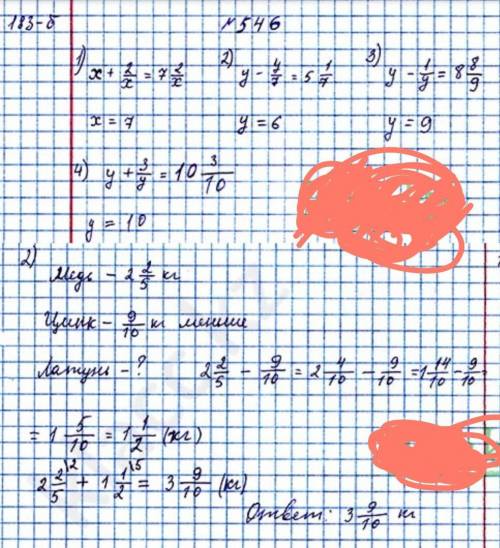 183-б № 546
1) x + 2/x = 7 2/x 2) y - 4/7 = 5 1/7 3) y - 1/y = 8 8/9
x = 7 y = 6 y = 9
4) y + 3/y = 10 3/10
y = 10
2) Медь - 2 2/5 кг
Цинк - 9/10 кг меньше
Латунь - ? 2 2/5 - 9/10 = 2 4/10 - 9/10 = 1 14/10 - 9/10
= 1 5/10 = 1 1/2 (кг)
2 2/5 \2 + 1 1/2 \5 = 3 9/10 (кг)
Ответ: 3 9/10 кг